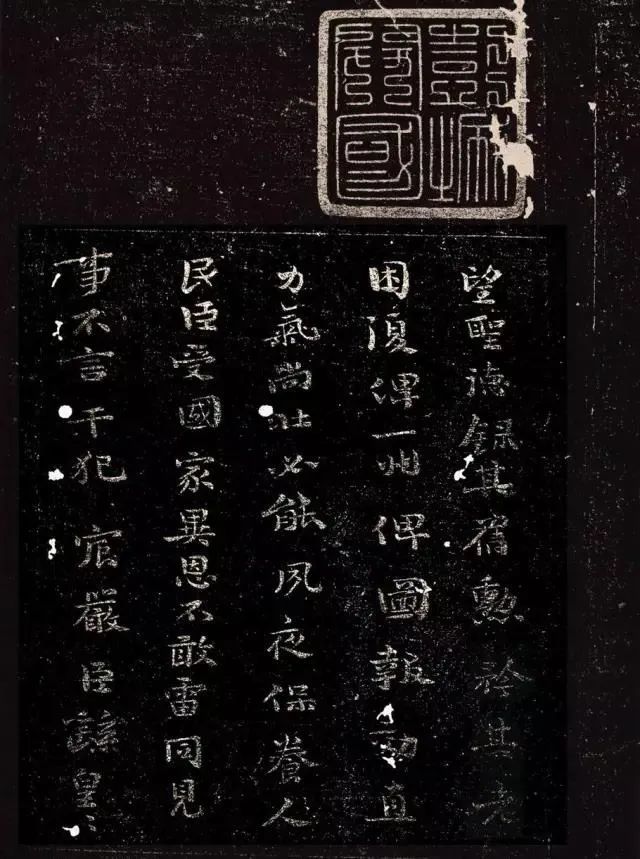 望聖德録其舊勳矜其老
困復俾一州俾圖報効直
力氣尚壯必能夙夜保養人
民臣受國家異恩不敢雷同見
事不言干犯宸嚴臣繇皇〻